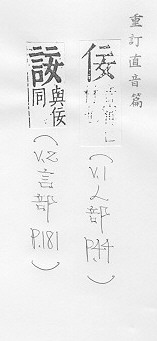 重訂直音篇
佞
(V.1 人部 P.44)
諉 與佞同
(V.2 言部 P.181)